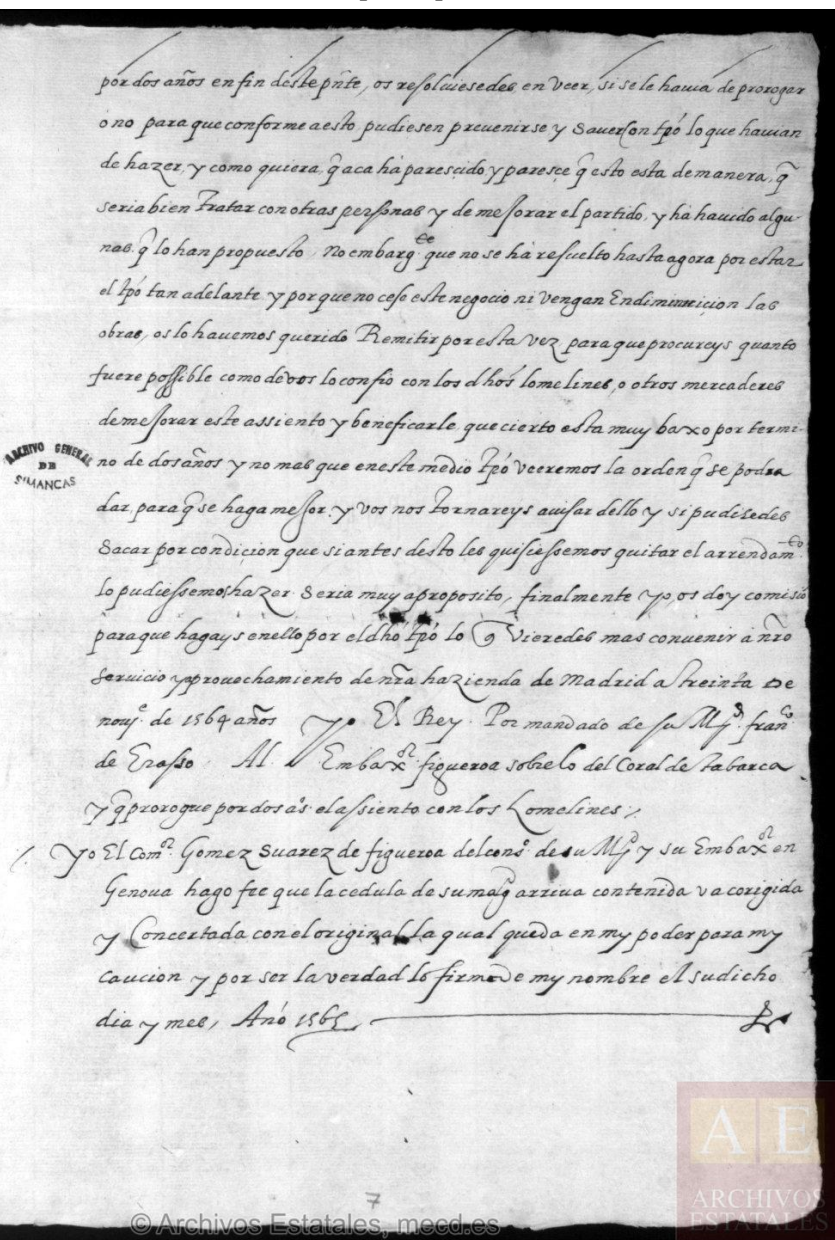 por dos años en fin deste pnte, os resolviesedes en veer, si se le havia de prorogar
o no para que conforme a esto pudiesen prevenirse y saver con tpõ lo que havian
de hazer, y como quiera q̃ aca hà parescido y paresce q̃ esto esta de manera, q̃
seria bien tratar con otras personas y de mejorar el partido, y hà havido algu-
nas q̃ lo han propuesto, No embargte que no se hà resuelto hasta agora por estar
el tpõ tan adelante y porque no cese este negocio ni vengan En diminuicion las
obras, os lo havemos querido Remitir por esta vez para que procureys quanto
fuere possible como de vos lo confio con los dhos lomelines, o otros mercaderes
de mejorar este assiento y beneficarle, que cierto esta muy baxo por termi-
no de dos años y no mas que en este medio tpõ veeremos la orden q̃ se podra
dar, para q̃ se haga mejor, y vos nos tornareys avisar dello y si pudisedes
sacar por condicion que si antes desto les quisiessemos quitar el arrendamto
lo pudiessemos hazer seria muy a proposito, finalmente yo, os doy comisiõ
para que hagays en ello por el dhõ tpõ lo q̃ vieredes mas convenir à nr̃o
servicio y aprovechamiento de nr̃a hazienda de Madrid a treinta de
nove de 1564 años Yo El Rey. Por mandado de su Mgd. franco
de Erasso. Al Embaxor figueroa sobre lo del Coral de tabarca
y q̃ prorogue por dos as. el assiento con los Lomelines /.
/ Yo El Comor. Gomez Suarez de figueroa del conso. de su Mgd y su Embaxor en
Genova hago fee que la cedula de su magd arriva contenida va corigida
y Concertada con el original la qual queda en my poder para my
caucion y por ser la verdad lo firme de my nombre el sudicho
dia y mes, Anõ 1565
ARCHIVO GENERAL
DE
SIMANCAS
7
AE
ARCHIVOS
ESTATALES
© Archivos Estatales, mecd.es